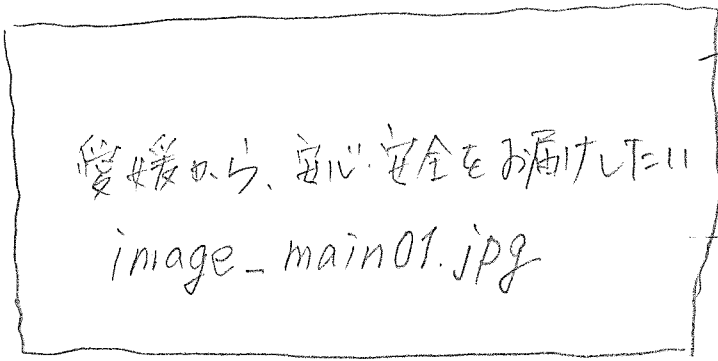 愛媛から、安心・安全をお届けしたい
image_main01.jpg